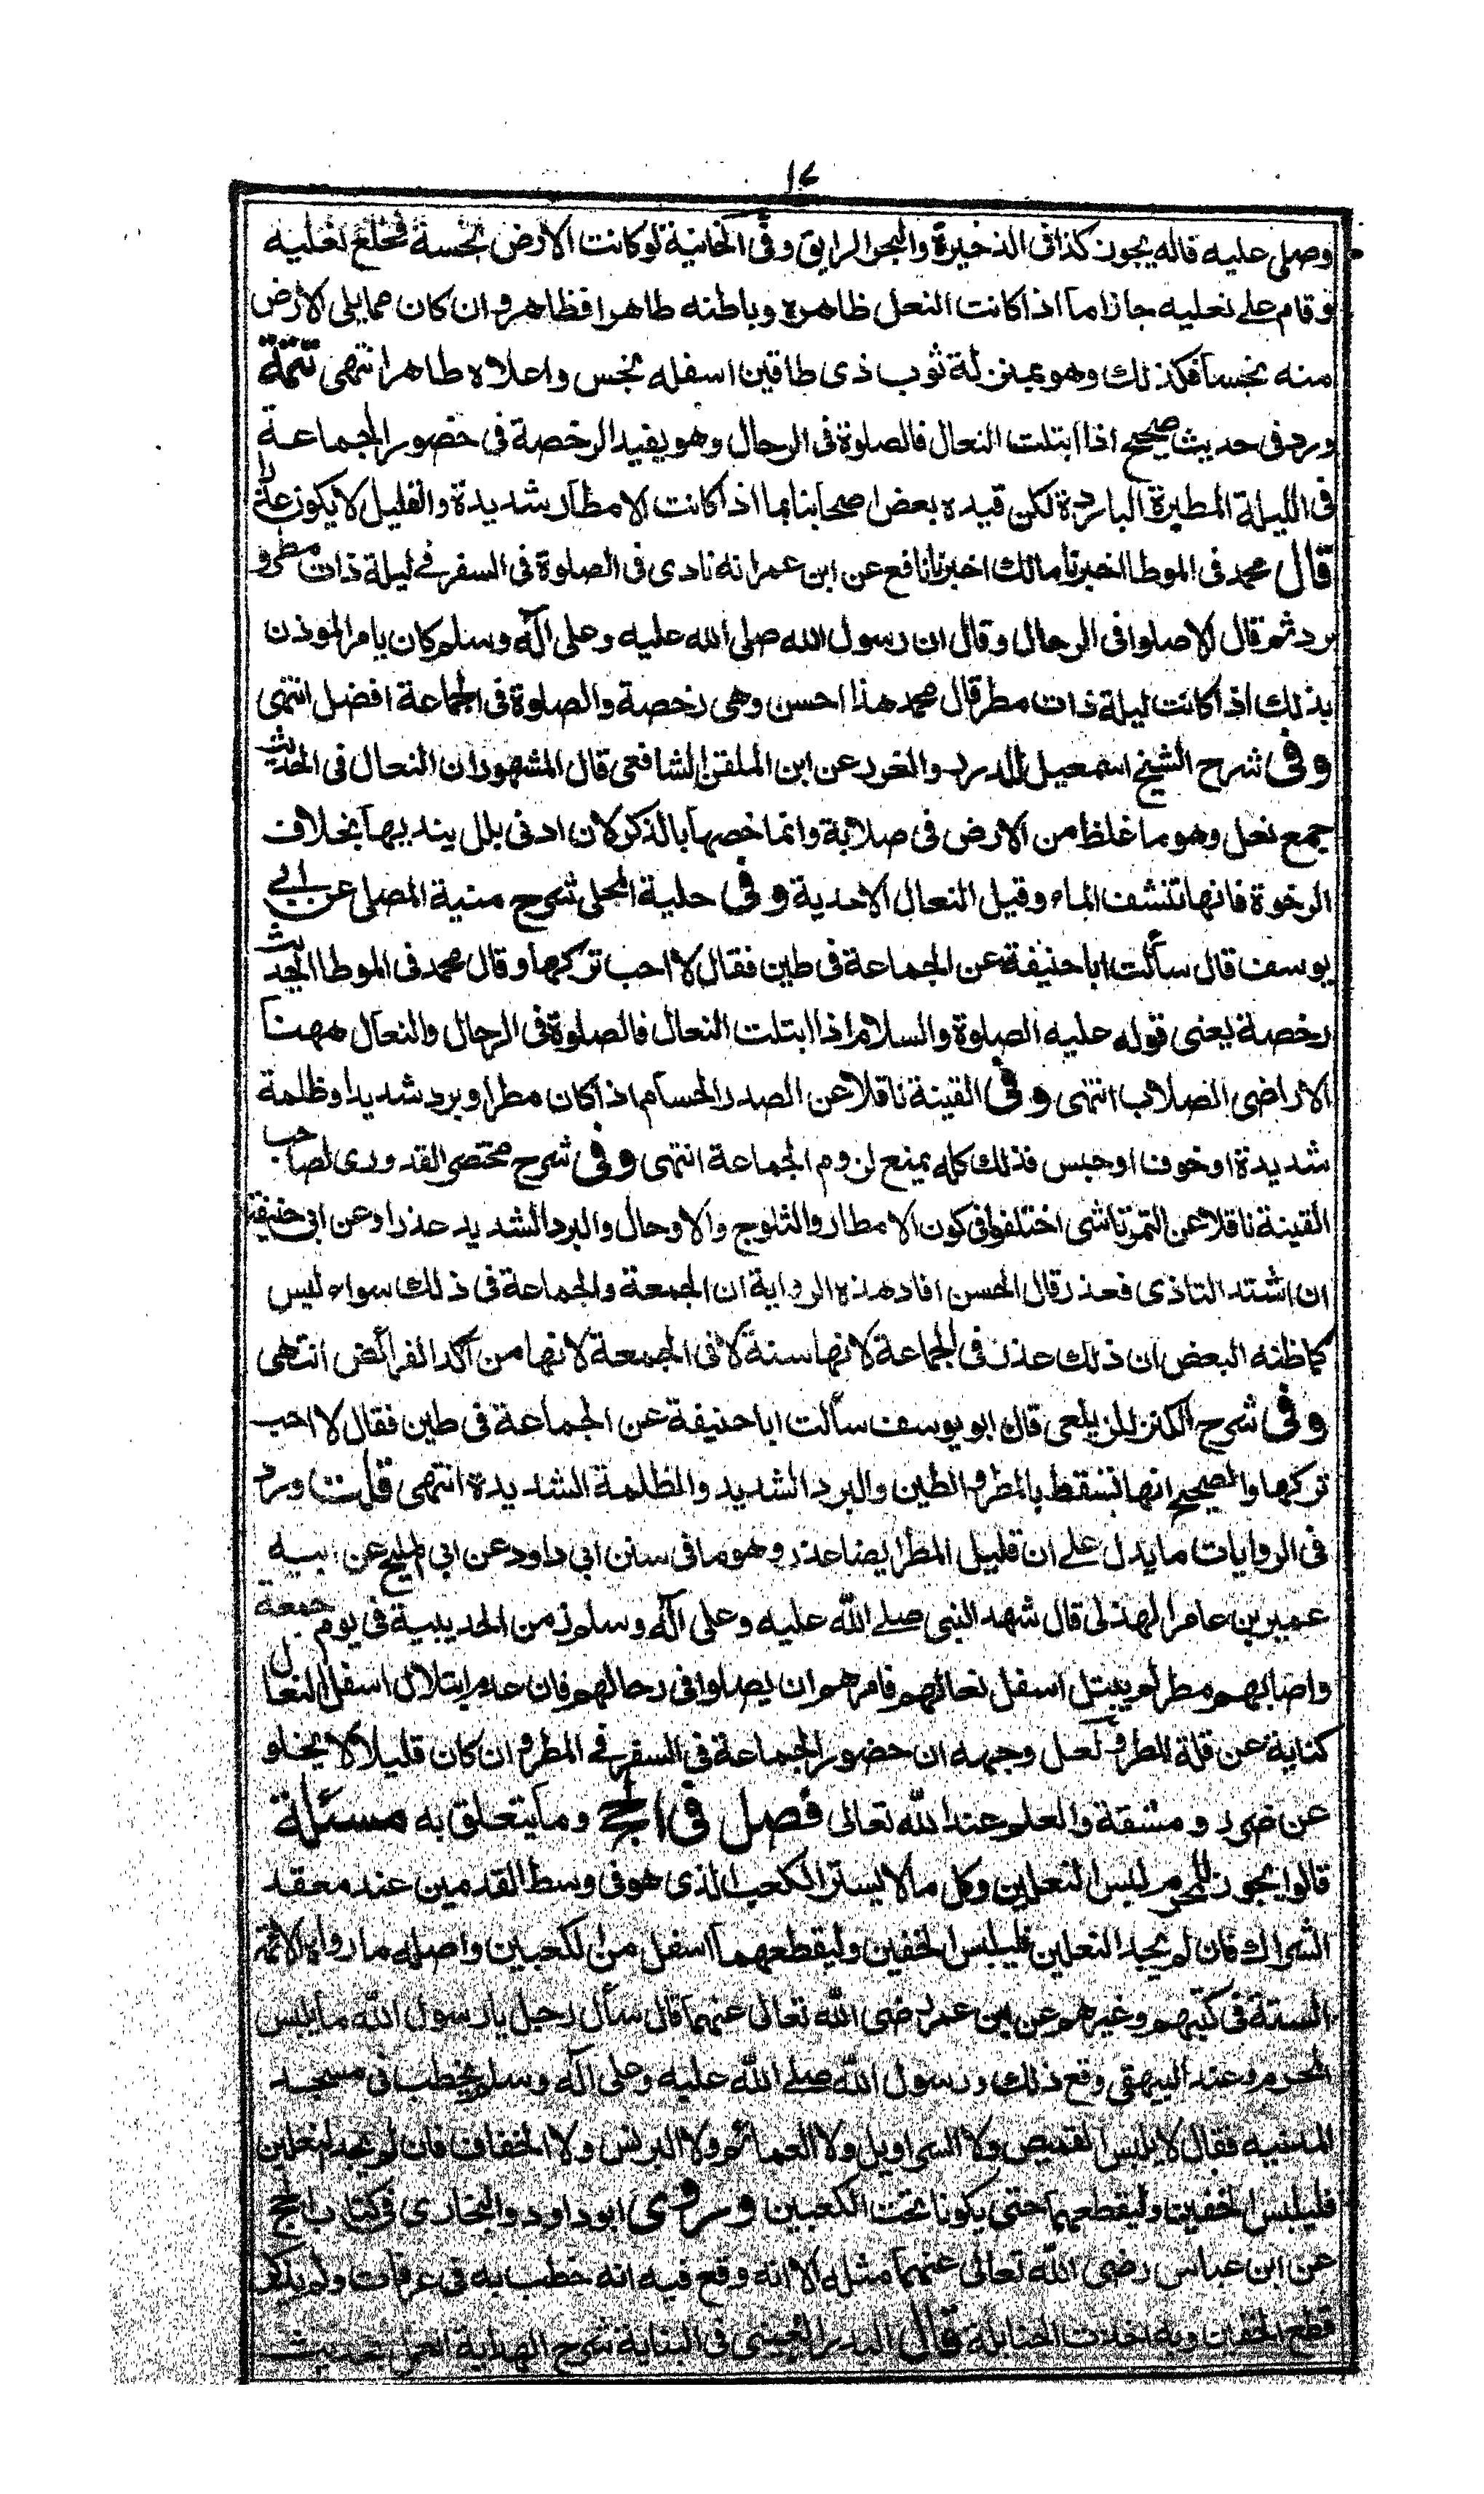 ١٤
وصلى عليه قاله يجوز كذا فى الذخيرة والبحر الرايق وفى الخانية لو كانت الارض نجسة فخلع نعليه
وقام على نعليه جاز اما اذا كانت النعل ظاهره وباطنه طاهرا فظاهر وان كان مما يلى الارض
منه نجسا فكذلك وهو بمنزلة ثوب ذى طاقين اسفله نجس واعلاه طاهرا انتهى تتمة
ورد فى حديث صحيح اذا ابتلت النعال فالصلوة فى الرحال وهو يفيد الرخصة فى حضور الجماعة
فى الليلة المطيرة الباردة لكن قيده بعض اصحابنا بما اذا كانت الامطار شديدة والقليل لا يكون عذرا
قال محمد فى الموطا اخبرنا مالك اخبرنا نافع عن ابن عمر انه نادى فى الصلوة فى السفر فى ليلة ذات مطر و
برد ثم قال الا صلوا فى الرحال وقال ان رسول الله صلى الله عليه وعلى آله وسلم كان يامر الموذن
بذلك اذا كانت ليلة ذات مطر قال محمد هذا احسن وهى رخصة والصلوة فى الجماعة افضل انتهى
وفى شرح الشيخ اسمعيل للدرر والغرر عن ابن الملقن الشافعى قال المشهور ان النعال فى الحديث
جمع نعل وهو ما غلظ من الارض فى صلابة وانما خصها بالذكر لان ادنى بلل ينديها بخلاف
الرخوة فانها تنشف الماء وقيل النعال الاحذية وفى حلية المحلى شرح منية المصلى عن ابى
يوسف قال سألت ابا حنيفة عن الجماعة فى طين فقال لا احب تركها وقال محمد فى الموطا الحديث
رخصة يعنى قوله عليه الصلوة والسلام اذا ابتلت النعال فالصلوة فى الرحال والنعال ههنا
الاراضى الصلاب انتهى وفى القينة ناقلا عن الصدر الحسام اذا كان مطر او برد شديد او ظلمة
شديدة او خوف او حبس فذلك كله يمنع لزوم الجماعة انتهى وفى شرح مختصر القدورى لصاحب
القينة ناقلا عن التمرتاشى اختلفوا فى كون الامطار والثلوج والاوحال والبرد الشديد عذرا وعن ابى حنيفة
ان اشتد التاذى فعذر قال الحسن افاد هذه الرواية ان الجمعة والجماعة فى ذلك سواء ليس
كما ظنه البعض ان ذلك عذر فى الجماعة لانها سنة لا فى الجمعة لانها من آكد الفرائض انتهى
وفى شرح الكنز للزيلعى قال ابو يوسف سألت ابا حنيفة عن الجماعة فى طين فقال لا احب
تركها والصحيح انها تسقط بالمطر والطين والبرد الشديد والظلمة الشديدة انتهى قلت ورد
فى الروايات ما يدل على ان قليل المطر ايضا عذر وهو ما فى سنن ابى داود عن ابى المليح عن ابيه
عمير بن عامر الهذلى قال شهد النبى صلى الله عليه وعلى آله وسلم زمن الحديبية فى يوم جمعة
واصابهم مطر لم يبتل اسفل نعالهم فامرهم ان يصلوا فى رحالهم فان عدم ابتلال اسفل النعال
كناية عن قلة المطر ولعل وجهه ان حضور الجماعة فى السفر فى المطر وان كان قليلا لا يخلو
عن ضرر ومشقة والعلم عند الله تعالى فصل فى الحج وما يتعلق به مسئلة
قالوا يجوز للمحرم لبس النعلين وكل ما لا يستر الكعب الذى هو فى وسط القدمين عند معقد
الشراك فان لم يجد النعلين فليلبس الخفين وليقطعهما اسفل من الكعبين واصله ما رواه الائمة
الستة فى كتبهم وغيرهم عن ابن عمر رضى الله تعالى عنهما قال سأل رجل يا رسول الله ما يلبس
المحرم وعند البيهقى وقع ذلك ورسول الله صلى الله عليه وعلى آله وسلم يخطب فى مسجد
المدنيه فقال لا يلبس القميص ولا السراويل ولا العمائم ولا البرنس ولا الخفاف فان لم يجد نعلين
فليلبس الخفين وليقطعهما حتى يكونا تحت الكعبين وروى ابو داود والبخارى فى كتاب الحج
عن ابن عباس رضى الله تعالى عنهما مثله الا انه وقع فيه انه خطب به فى عرفات ولم يذكر
قطع الخفين وبه اخذت الحنابلة قال البدر العينى فى البناية شرح الهداية العمل بحديث